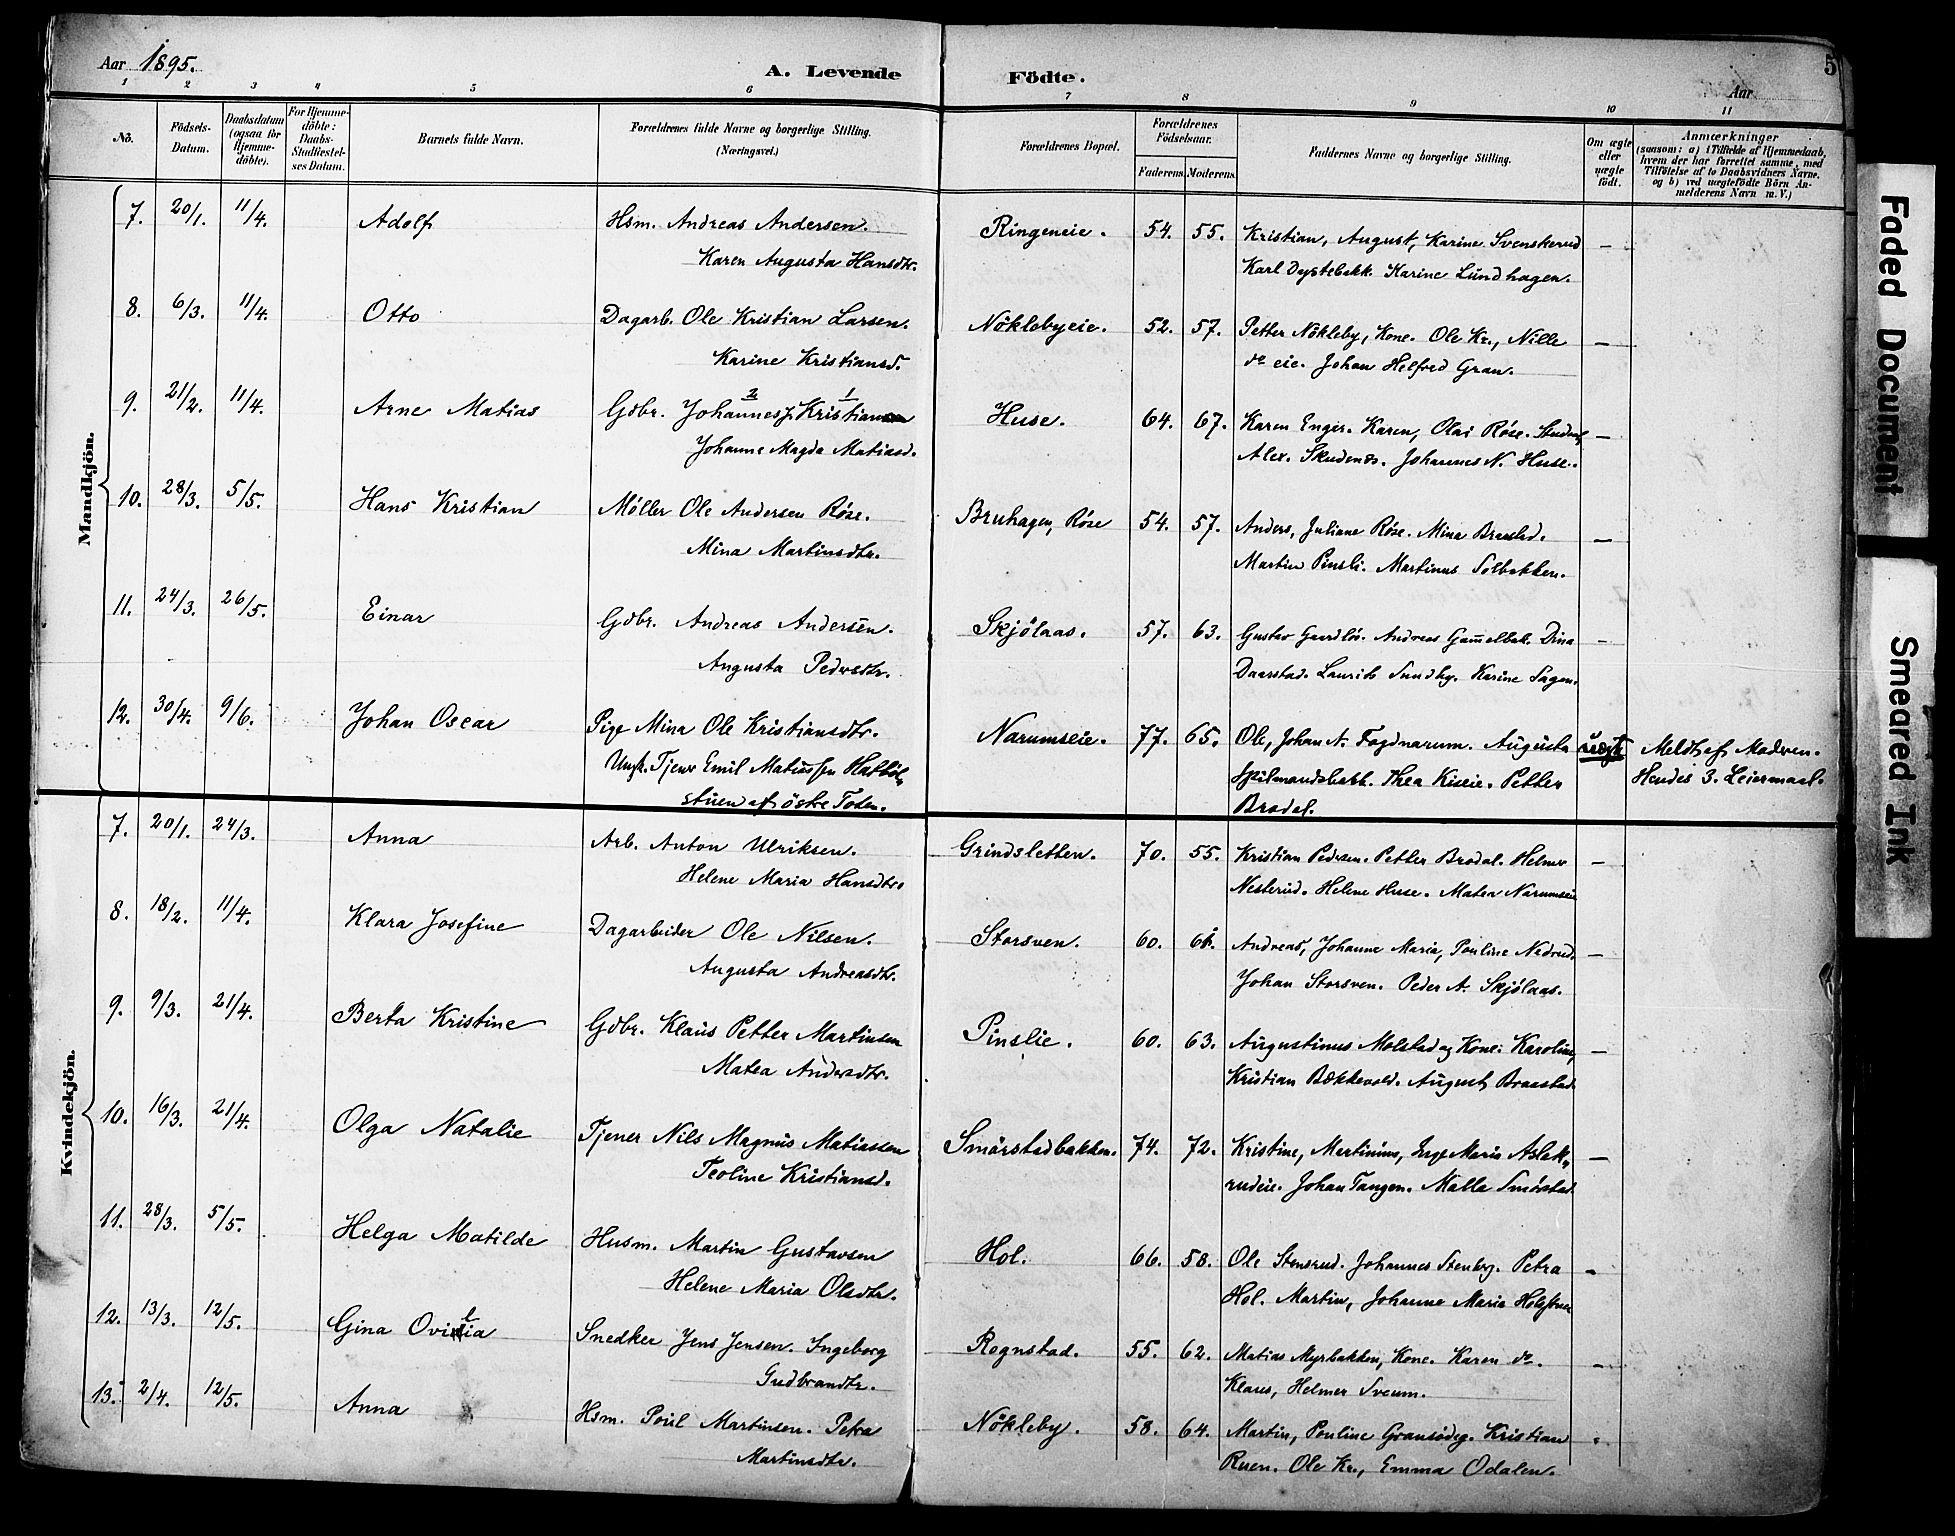 Aar 1895.
A. Levende Födte.
Aar
5
1 2 3 4 5 6 7 8 9 10 11
No.
Födsels-Datum.
Daabsdatum (ogsaa för Hjemme-döbte).
For Hjemme-döbte: Daabs-Stadfæstel-ses Datum.
Barnets fulde Navn.
Forældrenes fulde Navne og borgerlige Stilling.
(Næringsvei.)
Forældrenes Bopæl.
Forældrenes Födselsaar.
Faderens. Moderens.
Faddernes Navne og borgerlige Stilling.
Om ægte eller uægte födt.
Anmærkninger
(saasom: a) i Tilfælde af Hjemmedaab, hvem der har forrettet samme, med Tilföielse af to Daabsvidners Navne. og b) ved uægtefödte Börn An-melderens Navn m. V.)
Mandkjön.
7. 20/1. 11/4. Adolf Hsm. Andreas Andersen. Ringeneie. 54. 55. Kristian, August, Karine Svenskerud —
Karen Augusta Hansdtr. Karl Dystebakk. Karine Lundhagen.
8. 6/3. 11/4. Otto Dagarb. Ole Kristian Larsen. Nöklebyeie. 52. 57. Petter Nökleby, Kone. Ole Kr., Nille —
Karine Kristiansd. do eie. Johan Helfred Gran.
9. 21/2. 11/4. Arne Matias Gdbr. Johannes Kristiansen Huse. 64. 67. Karen Enger. Karen, Olai Röse. —
Johanne Magda Matiasd. Alex. Skudenæs. Johannes N. Huse.
10. 28/3. 5/5. Hans Kristian Møller Ole Andersen Röse. Bruhagen, Röse 54. 57. Anders, Juliane Röse. Mina Braastad. —
Mina Martinsdtr. Martin Pinsli. Martinus Solbakken.
11. 24/3. 26/5. Einar Gdbr. Andreas Andersen. Skjölaas. 57. 63. Gustav Gaardlös. Andreas Gam̄elbak. Dina —
Augusta Pedersdtr. Daarstad. Laurits Sundby. Karine Sagen.
12. 30/4. 9/6. Johan Oscar Pige Mina Ole Kristiansdtr. Narumseie. 77. 65. Ole, Johan A. Fagdnarum. Augusta uægte Meldt af Madren.
Ungk. Tjener Emil Matiassen Spilmandsbakk. Thea Kiseie. Petter Hendes 3. Leiermaal.
stuen af östre Toten. Bradal.
Kvindekjön.
7. 20/1. 24/3. Anna Arb. Anton Ulriksen. Grindsletten. 70. 55. Kristian Pedersen. Petter Bradal. Helmer —
Helene Maria Hansdtr. Nesterud. Helene Huse. Matea Narumseie
8. 18/2. 11/4. Klara Josefine Dagarbeider Ole Nilsen. Storsven. 60. Andreas, Johanne Maria, Pouline Nedrud. —
Augusta Andreasdtr. Johan Storsven. Peder A. Skjölaas.
9. 9/3. 21/4. Berta Kristine Gdbr. Klaus Petter Martinsen Pinslie. 60. 63. Augustinus Molstad og Kone. Karoline, —
Matea Andersdtr. Kristian Bækkevold. August Braastad.
10. 16/3. 21/4. Olga Natalie Tjener Nils Magnus Matiassen Smörstadbakken. 74. 72. Kristine, Martinius, Inge Marie Aslak- —
Teoline Kristiansd. rudeie. Johan Tangen. Malla Smörstad.
11. 28/3. 5/5. Helga Matilde Husm. Martin Gustavsen Hol. 66. 58. Ole Stensrud. Johannes Stenberg. Petra —
Helene Maria Olsdtr. Hol. Martin, Johanne Marie
12. 13/3. 12/5. Gina Snedker Jens Jensen. Ingeborg Rognstad. 55. 62. Matias Myrbakken, Kone. Karen do. —
Gudbrandtr. Klaus, Helmer Sveum.
13. 2/4. 12/5. Anna Hsm. Poul Martinsen. Petra Nökleby. 58. 64. Martin, Pouline Gransödeg. Kristian
Martinsdtr. Ruen. Ole Kr., Emma Odalen.
Faded Document
Smeared Ink